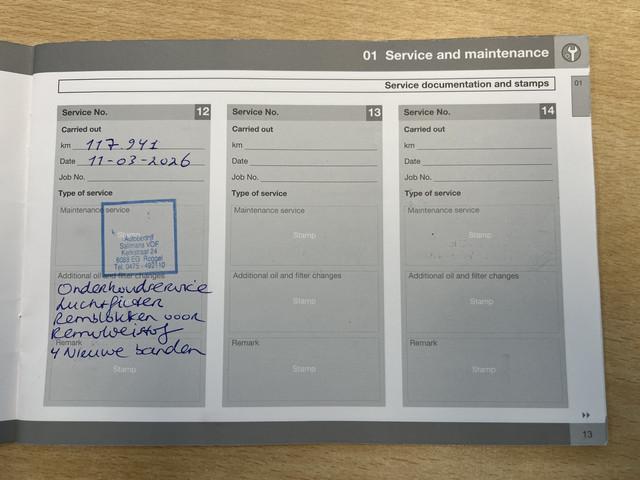 01 Service and maintenance
Service documentation and stamps
01
Service No. 12
Carried out
km 117.941
Date 11-03-2026
Job No.
Type of service
Maintenance service
Stamp
Autobedrijf
Salimans VOF
Kerkstraat 24
6088 EG Roggel
Tel. 0475 - 492110
Additional oil and filter changes
Onderhoudservice
Luchtfilter
Remblokken voor
Remvloeistof
Remark
4 Nieuwe banden
Stamp
Service No. 13
Carried out
km
Date
Job No.
Type of service
Maintenance service
Stamp
Additional oil and filter changes
Stamp
Remark
Stamp
Service No. 14
Carried out
km
Date
Job No.
Type of service
Maintenance service
Stamp
Additional oil and filter changes
Stamp
Remark
Stamp
13